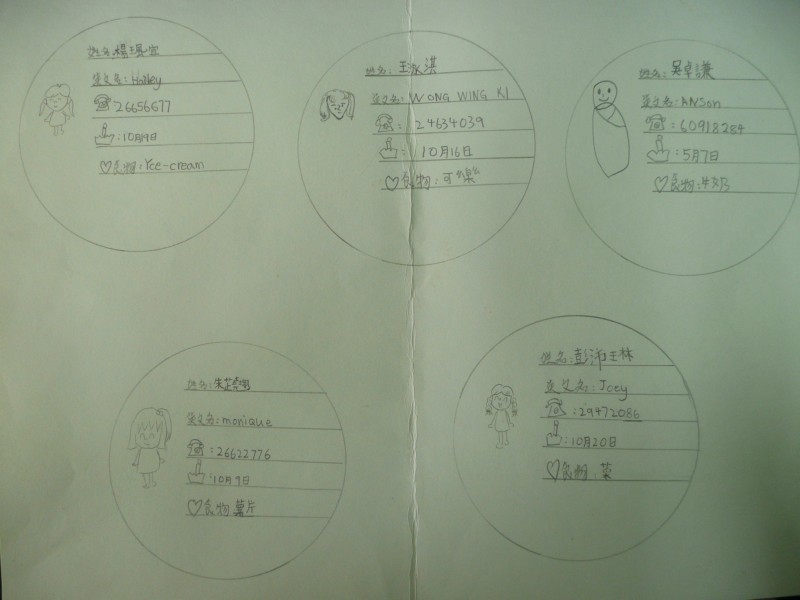 姓名:楊珼宜
英文名: Hailey
☎ 26656677
:10月9日
♡食物:Yce-cream
姓名: 王泳淇
英文名: WONG WING KI
☎: 24634039
: 10月16日
♡食物:可樂
姓名: 吳卓謙
英文名:ANSon
☎:60918284
:5月7日
♡食物:牛奶
姓名:朱芷
英文名:monique
☎:26622776
:10月9日
♡食物 薯片
姓名:彭沛琳
英文名:Joey
☎:29472086
:10月20日
♡食物:菜